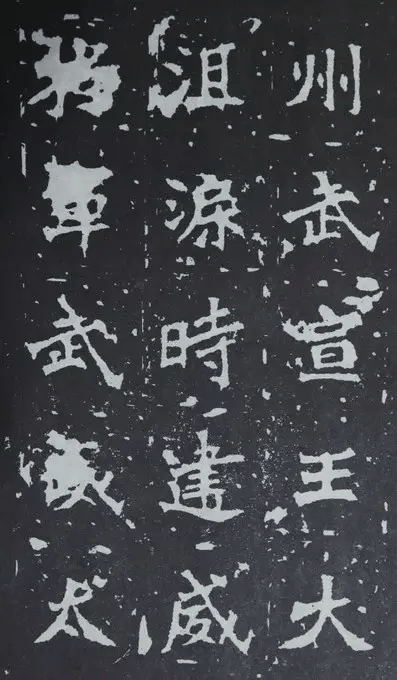 州武宣王大
沮渠時建威
將軍武威太